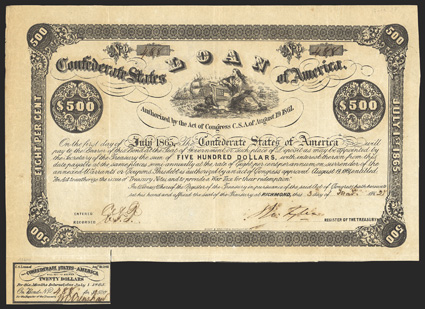 500
500
No
No
LOAN
Confederate States
of America.
$500
$500
Authorized by the Act of Congress C.S.A. of August 19 1861.
EIGHT PER CENT
JULY 1st 1865
On the first day of July 1865, The Confederate States of America will
pay to the Bearer of this Bond at the Seat of Government or such place of deposit as may be appointed by
the Secretary of the Treasury the sum of FIVE HUNDRED DOLLARS, with interest thereon from this
date payable at the same place, semi annually at the rate of Eight per cent per annum, on surrender of the
annexed Warrants or Coupons. This debt is authorized by an act of Congress approved August 19, 1861, entitled
of Treasury Notes, and to provide a War Tax for their redemption."
In Witness Whereof the Register of the Treasury in pursuance of the said Act of Congress hath hereunto
set his hand and affixed the seal of the Treasury at RICHMOND, this 3 day of
ENTERED
REGISTER OF THE TREASURY
500
500
CONFEDERATE STATES OF AMERICA
TWENTY DOLLARS
For Six Months Interest due July 1
On Bond No 488 for $500